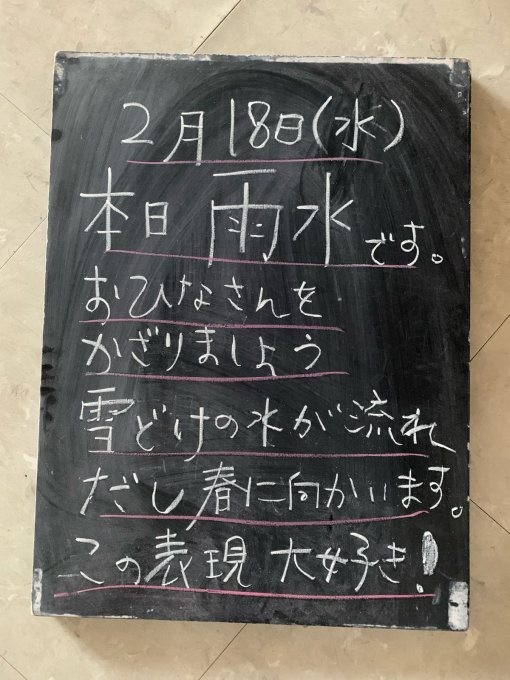 2月18日(水)
本日 雨水です。
おひなさんを
かざりましょう
雪どけの水が流れ
だし春に向かいます。
この表現 大好き!